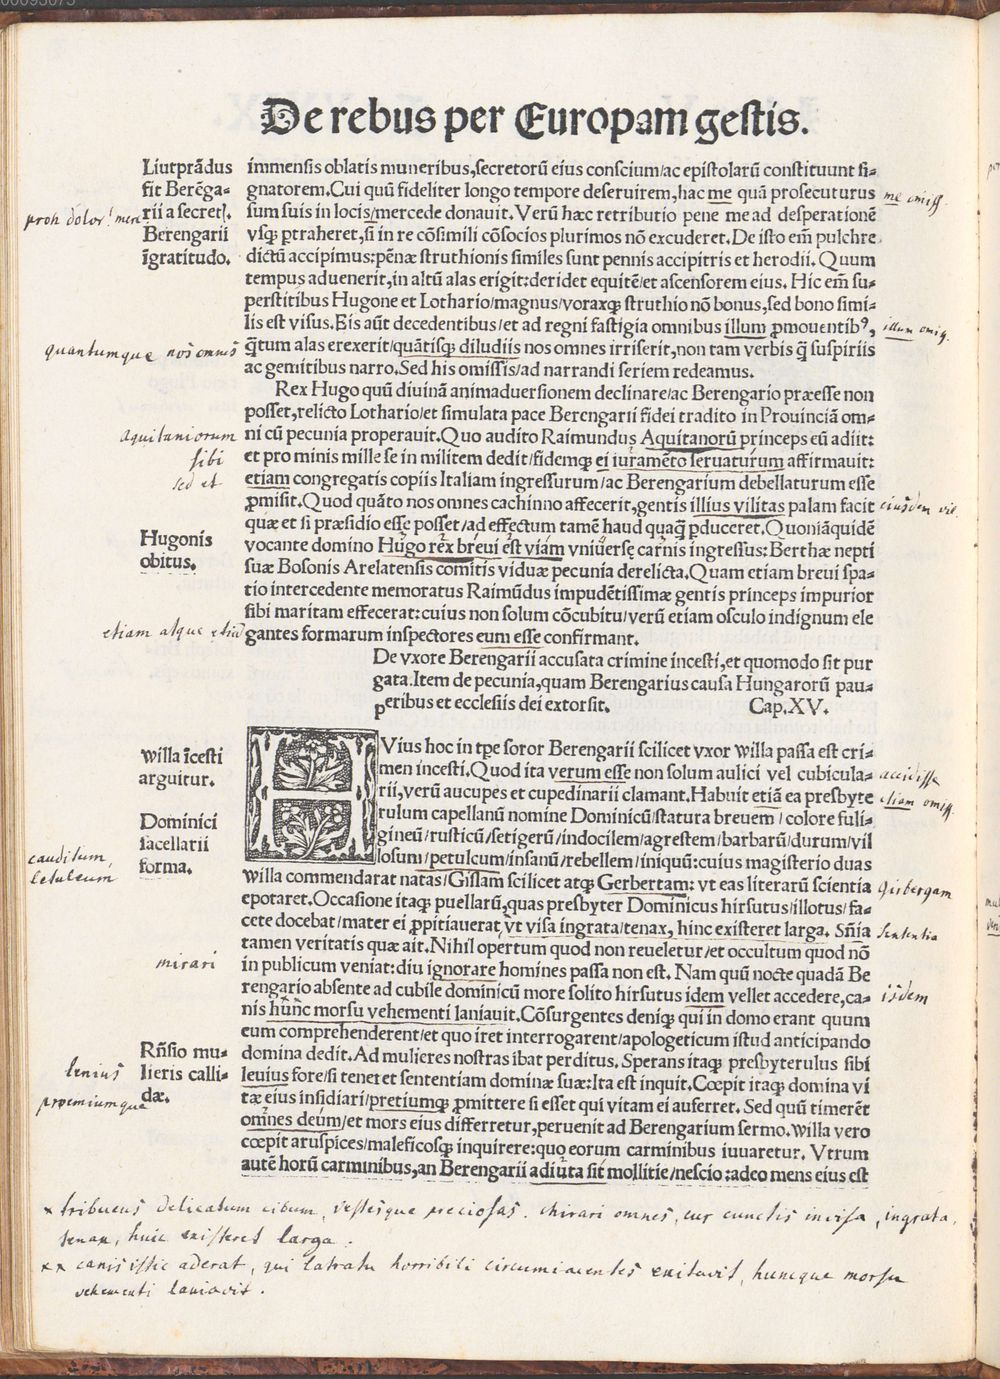 De rebus per Europam gestis.
Liutprãdus
fit Berẽga-
rii a secretꝭ.
Berengarii
ĩgratitudo.
proh dolor! mere
immensis oblatis muneribus, secretorũ eius conscium/ac epistolarũ constituunt si-
gnatorem. Cui quũ fideliter longo tempore deseruirem, hac me quã prosecuturus
sum suis in locis/mercede donauit. Verũ hæc retributio pene me ad desperationẽ
vsqȝ ꝑtraheret, si in re cõsimili cõsocios plurimos nõ excuderet. De isto em̃ pulchre
dictũ accipimus: pẽnæ struthionis similes sunt pennis accipitris et herodii. Quum
tempus aduenerit, in altũ alas erigit: deridet equitẽ/et ascensorem eius. Hic em̃ su-
perstitibus Hugone et Lothario/magnus/voraxqȝ struthio nõ bonus, sed bono simi-
lis est visus. Eis aũt decedentibus/et ad regni fastigia omnibus illum ꝓmouentibꝰ,
q̃tum alas erexerit/quãtisqȝ diludiis nos omnes irriserit, non tam verbis q̃ suspiriis
ac gemitibus narro. Sed his omissis/ad narrandi seriem redeamus.
me omiss.
illum omiss.
quantumque nos omnes
Rex Hugo quũ diuinã animaduersionem declinare/ac Berengario præesse non
posset, relicto Lothario/et simulata pace Berengarii fidei tradito in Prouinciã om-
ni cũ pecunia properauit. Quo audito Raimundus Aquitanorũ princeps eũ adiit:
et pro minis mille se in militem dedit/fidemqȝ ei iuramẽto seruaturum affirmauit:
etiam congregatis copiis Italiam ingressurum/ac Berengarium debellaturum esse
ꝓmisit. Quod quãto nos omnes cachinno affecerit, gentis illius vilitas palam facit
quæ et si præsidio esse posset/ad effectum tamẽ haud quaqȝ ꝑduceret. Quoniãquidẽ
vocante domino Hugo rex breui est viam vniuersę carnis ingressus: Berthæ nepti
suæ Bosonis Arelatensis comitis viduæ pecunia derelicta. Quam etiam breui spa-
tio intercedente memoratus Raimũdus impudẽtissimæ gentis princeps impurior
sibi maritam effecerat: cuius non solum cõcubitu/verũ etiam osculo indignum ele
gantes formarum inspectores eum esse confirmant.
Aquitaniorum
sibi
sed et
eiusdem vil.
Hugonis
obitus.
etiam atque etiam
De vxore Berengarii accusata crimine incesti, et quomodo sit pur
gata. Item de pecunia, quam Berengarius causa Hungarorũ pau-
peribus et ecclesiis dei extorsit. Cap. XV.
Willa ĩcesti
arguitur.
Dominici
sacellarii
forma.
HVius hoc in tpe soror Berengarii scilicet vxor Willa passa est cri-
men incesti. Quod ita verum esse non solum aulici vel cubicula-
rii, verũ aucupes et cupedinarii clamant. Habuit etiã ea presbyte
rulum capellanũ nomine Dominicũ/statura breuem/colore fuli-
gineũ/rusticũ/setigerũ/indocilem/agrestem/barbarũ/durum/vil
losum/petulcum/insanũ/rebellem/iniquũ: cuius magisterio duas
Willa commendarat natas/Gislam scilicet atqȝ Gerbertam: vt eas literarũ scientia
epotaret. Occasione itaqȝ puellarũ, quas presbyter Dominicus hirsutus/illotus/fa-
cete docebat/mater ei ꝓpitiauerat, vt visa ingrata/tenax, hinc existeret larga. Sñia
tamen veritatis quæ ait. Nihil opertum quod non reueletur/et occultum quod nõ
in publicum veniat: diu ignorare homines passa non est. Nam quũ nocte quadã Be
rengario absente ad cubile dominicũ more solito hirsutus idem vellet accedere, ca-
nis hũnc morsu vehementi laniauit. Cõsurgentes deniqȝ qui in domo erant quum
eum comprehenderent/et quo iret interrogarent/apologeticum istud anticipando
domina dedit. Ad mulieres nostras ibat perditus. Sperans itaqȝ presbyterulus sibi
leuius fore/si teneret sententiam dominæ suæ: Ita est inquit. Cœpit itaqȝ domina vi
tæ eius insidiari/pretiumqȝ ꝓmittere si esset qui vitam ei auferret. Sed quũ timerẽt
omnes deum/et mors eius differretur, peruenit ad Berengarium sermo. Willa vero
cœpit aruspices/maleficosqȝ inquirere: quo eorum carminibus iuuaretur. Vtrum
autẽ horũ carminibus, an Berengarii adiuta sit mollitie/nescio: adeo mens eius est
accidisse
etiam omiss.
cauditum,
Girbergam
sententia
mirari
isdem
Rñsio mu-
lieris calli-
dæ.
lenius
proemiumque
× tribuens delicatum cibum, vestesque preciosas. Mirari omnes, cur cunctis invisa, ingrata,
tenax, huic existeret larga.
×× canis istic aderat, qui latratu horribili circumiacentes excitavit, huncque morsu
vehementi laniavit.